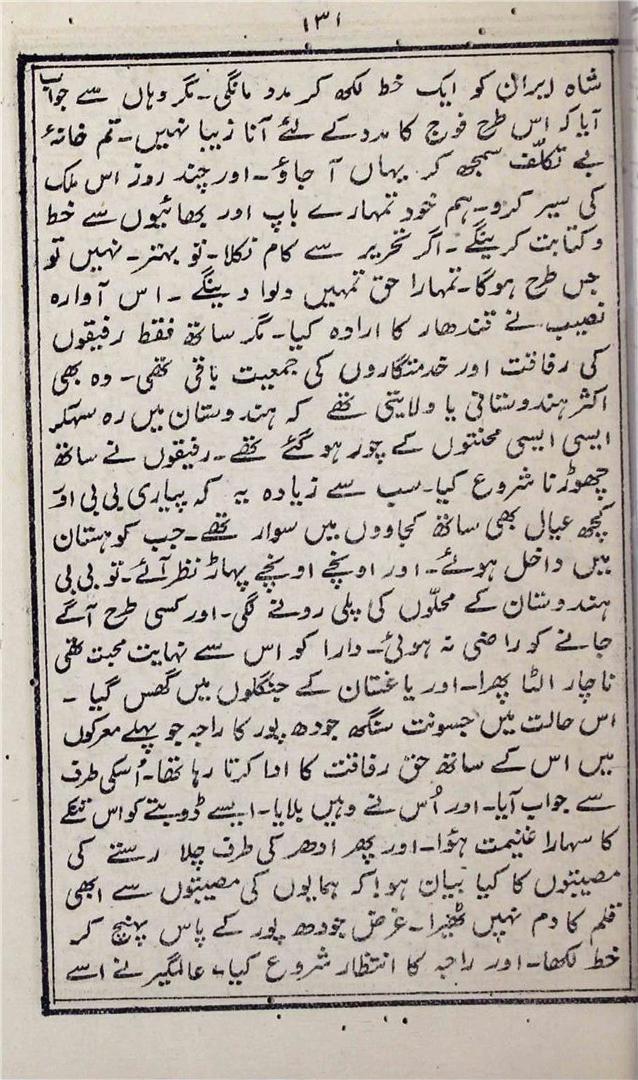 ۱۳۱
شاہ ایران کو ایک خط لکھ کر مدد مانگی۔ مگر وہاں سے جواب
آیا کہ اس طرح فوج کا مدد کے لئے آنا زیبا نہیں۔ تم خانۂ
بے تکلّف سمجھ کر یہاں آ جاؤ۔ اور چند روز اس ملک
کی سیر کرو۔ ہم خود تمہارے باپ اور بھائیوں سے خط
و کتابت کرینگے۔ اگر تحریر سے کام نکلا۔ تو بہتر۔ نہیں تو
جس طرح ہوگا۔ تمہارا حق تمہیں دلوا دینگے۔ اس آوارہ
نصیب نے قندھار کا ارادہ کیا۔ مگر ساتھ فقط رفیقوں
کی رفاقت اور خدمتگاروں کی جمعیت باقی تھی۔ وہ بھی
اکثر ہندوستانی یا ولایتی تھے کہ ہندوستان میں رہ سہکر
ایسی ایسی محنتوں کے چور ہو گئے تھے۔ رفیقوں نے ساتھ
چھوڑنا شروع کیا۔ سب سے زیادہ یہ کہ پیاری بی بی اور
کچھ عیال بھی ساتھ کجاووں میں سوار تھے۔ جب کوہستان
میں داخل ہوئے۔ اور اونچے اونچے پہاڑ نظر آئے۔ تو بی بی
ہندوستان کے محلّوں کی پلی رونے لگی۔ اور کسی طرح آگے
جانے کو راضی نہ ہوئی۔ دارا کو اس سے نہایت محبت تھی
ناچار الٹا پھرا۔ اور یاغستان کے جنگلوں میں گھس گیا۔
اس حالت میں جسونت سنگھ جودھ پور کا راجہ جو پہلے معرکوں
میں اس کے ساتھ حق رفاقت کا ادا کرتا رہا تھا۔ اُسکی طرف
سے جواب آیا۔ اور اُس نے وہیں بلایا۔ ایسے ڈوبتے کو اس تنکے
کا سہارا غنیمت ہؤا۔ اور پھر ادھر کی طرف چلا رستے کی
مصیبتوں کا کیا بیان ہو! کہ ہمایوں کی مصیبتوں سے ابھی
قلم کا دم نہیں ٹھیرا۔ غرض جودھ پور کے پاس پہنچ کر
خط لکھا۔ اور راجہ کا انتظار شروع کیا۔ عالمگیر نے اسے